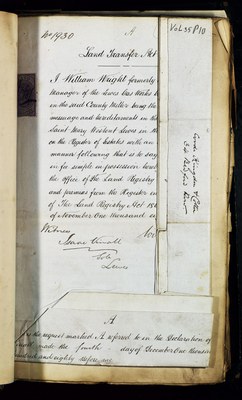 No 1930
A
Vol 35 P 10
Land Transfer Act
I William Wright formerly
Manager of the Lewes Gas Works
in the said County
being the
messuage and hereditaments in the
Saint Mary Westout Lewes in the
on the Register of Estates with an
manner following that is to say
in fee simple in possession
the office of the Land Registry
and premises from the Register
of The Land Registry Act 18
of November One thousand
Witness
Lewes
A
is the request marked A referred to in the Declaration of
made the fourth day of December One thousand
and eighty before me